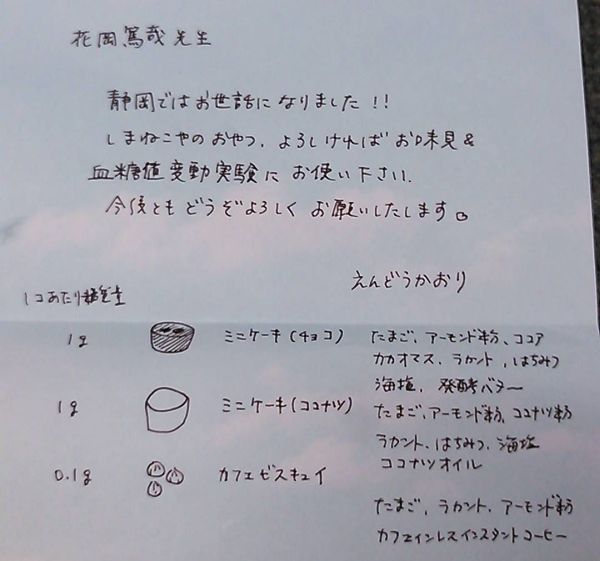 花岡篤哉先生
静岡ではお世話になりました!!
しまねこやのおやつ、よろしければお味見&
血糖値変動実験にお使い下さい.
今後ともどうぞよろしくお願いしたします。
えんどうかおり
1コあたり糖質量
1g ミニケーキ(チョコ) たまご、アーモンド粉、ココア
カカオマス、ラカント、はちみつ
海塩、発酵バター
1g ミニケーキ(ココナツ) たまご、アーモンド粉、ココナツ粉
ラカント、はちみつ、海塩
ココナツオイル
0.1g カフェビスキュイ
たまご、ラカント、アーモンド粉
カフェインレスインスタントコーヒー